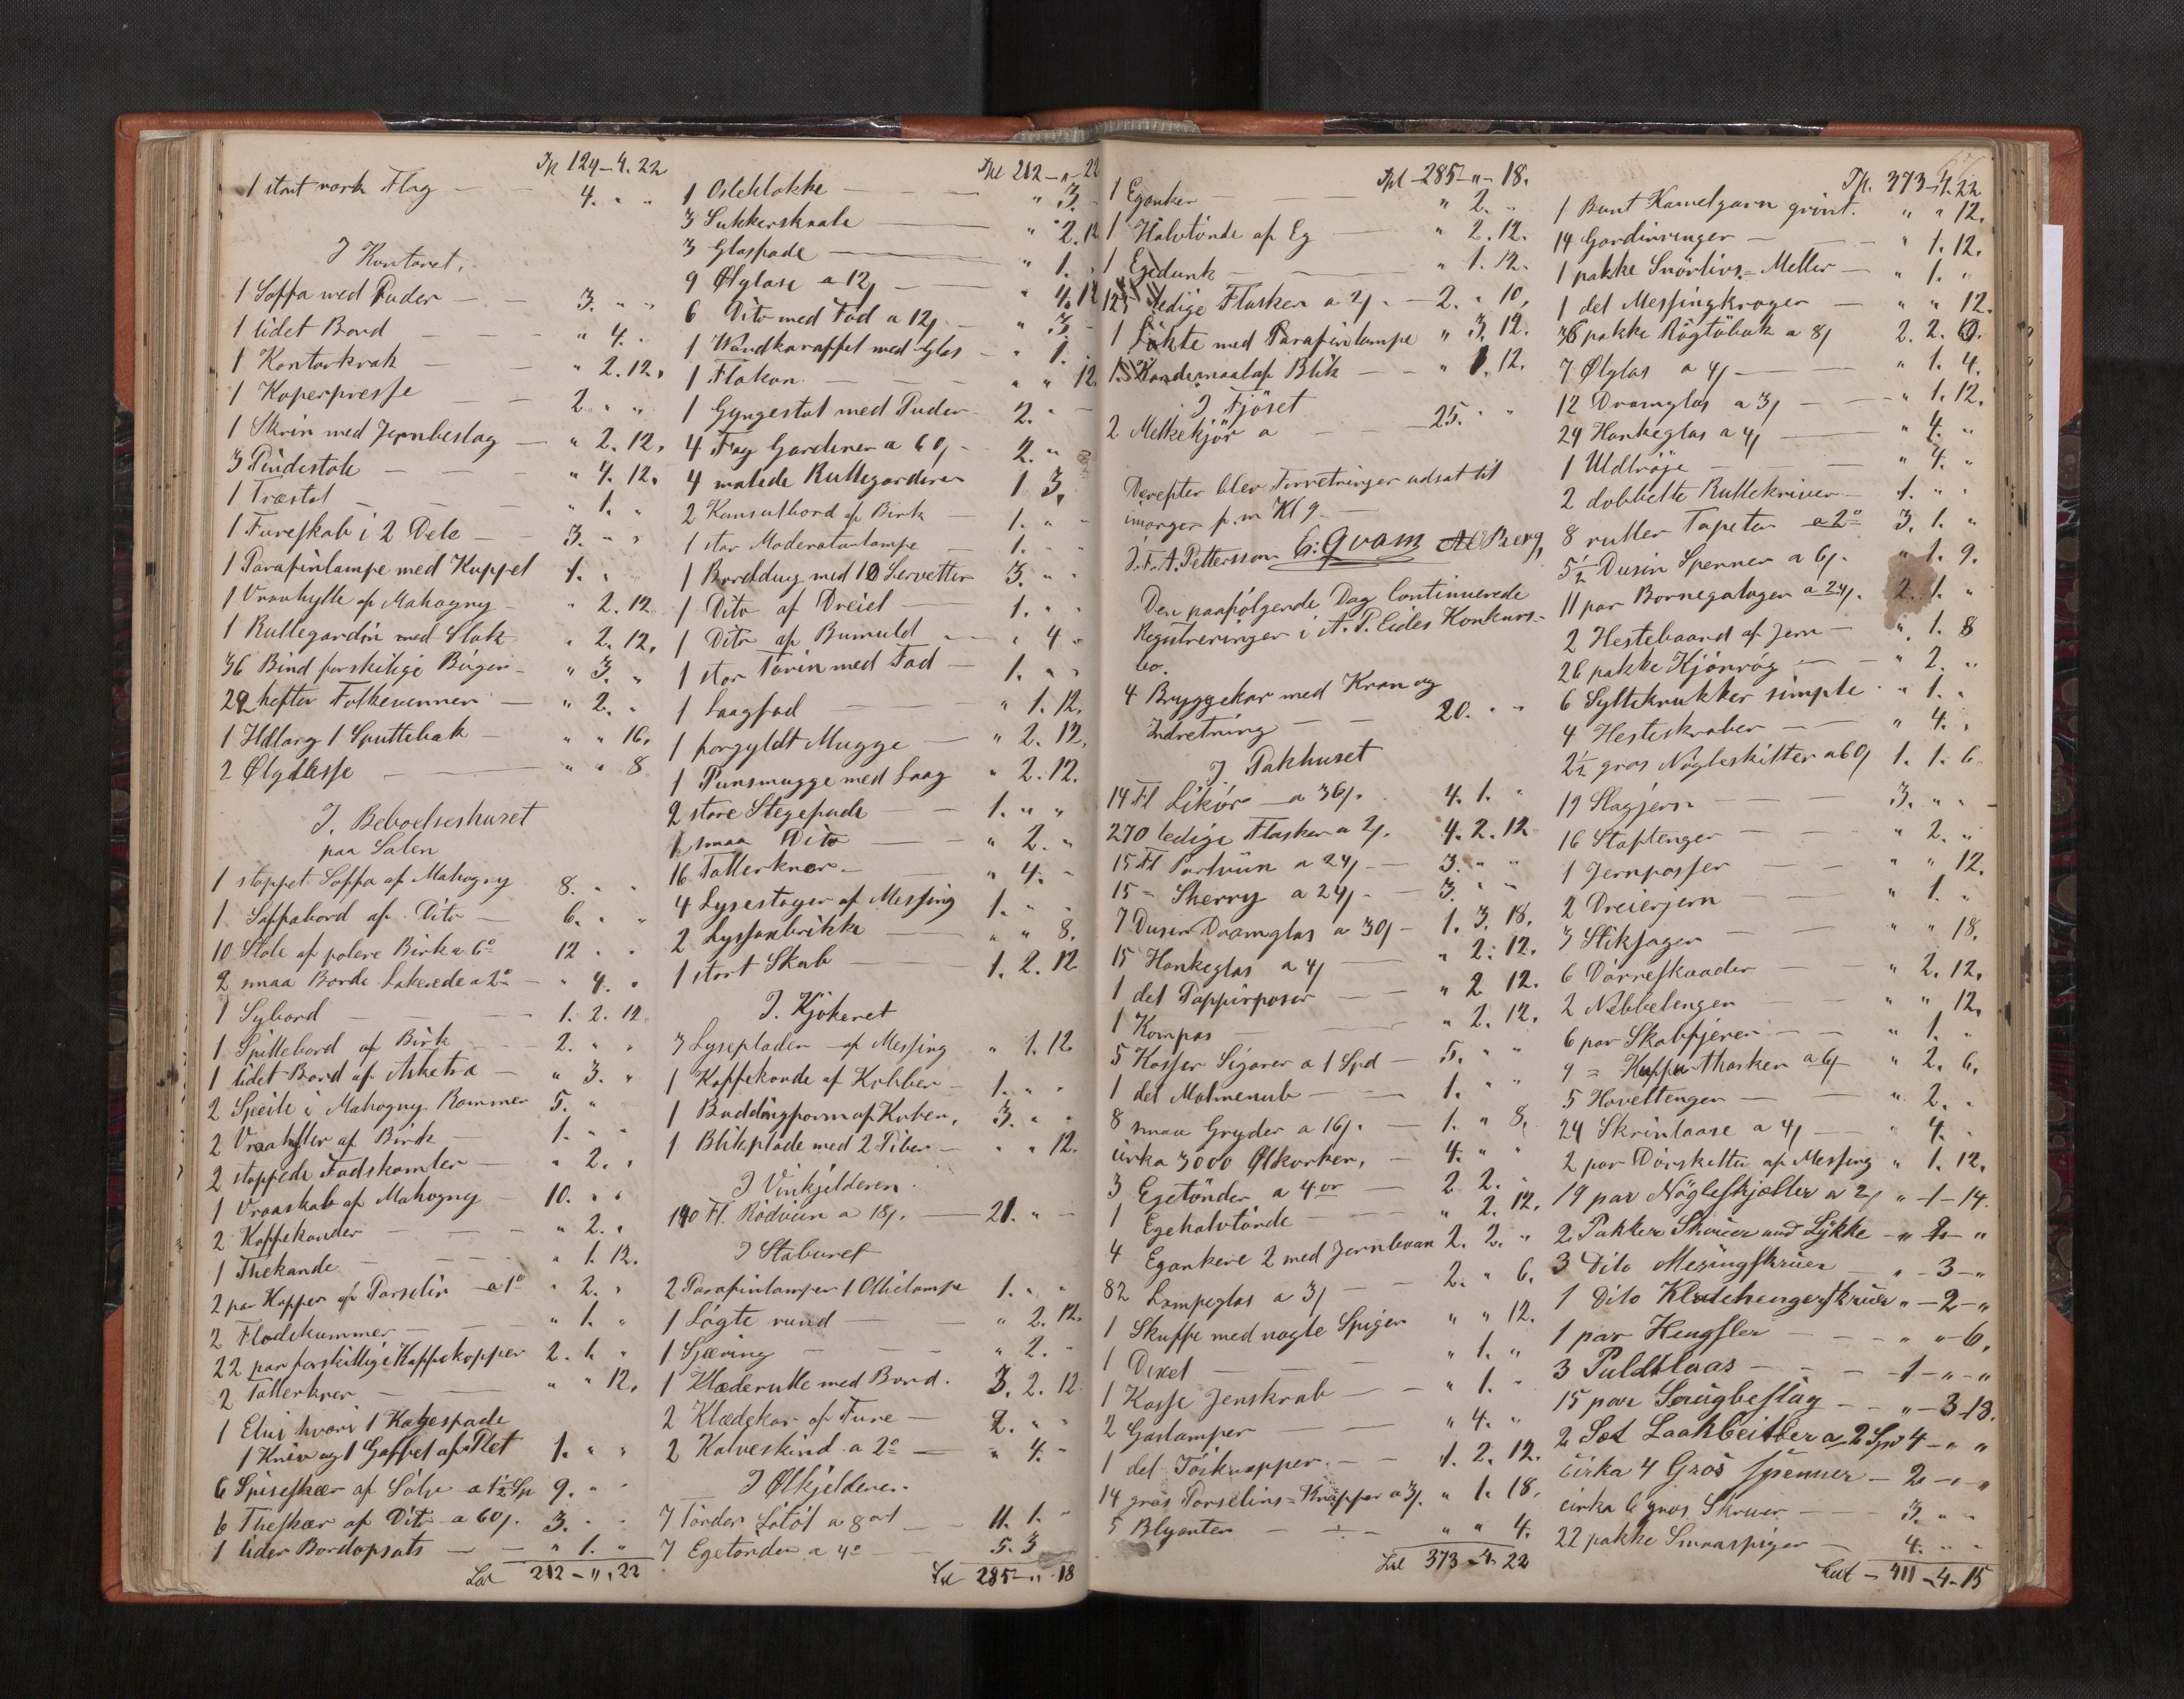 Sp 124 - 4. 22
1 stort norsk Flag — 4. " "
I Kontoret.
1 Soffa med Puder — 3. " "
1 lidet Bord — " 4. "
1 Kontorkrak — " 2. 12.
1 Koperpresse — 2. " "
1 Skrin med Jernbeslag — " 2. 12.
3 Pindestole — " 4. 12.
1 Træstol — " 1. "
1 Fureskab i 2 Dele — 3. " "
1 Parafinlampe med Kuppel 1. " "
1 Vraahylle af Mahogny — " 2. 12
1 Rullegardin med Stok " 2. 12.
36 Bind forskjellige Bøger — " 3. "
22 hefter Folkevennen — " 2. "
1 Spyttebak — " " 16.
2 Ølglasse — " " 8
I. Beboelseshuset
paa Salen
1 stoppet Soffa af Mahogny 8. " "
1. Soffabord af Dito — 6. " "
10 Stole af polere Birk a 6 o 12 " "
2 smaa Borde Lakerede a 2 o — " 4. "
1 Sybord — 1. 2. 12
1. Spillebord af Birk — 2. " "
1 lidet Bord af Asketræ — " 3. "
2 Speile i Mahogny Rammer 5. " "
2 Vraahyller af Birk — 1. " "
2 stoppede Fodskamler — " 2. "
1 Vraaskab af Mahogny — 10. " "
2 Kaffekander — " 2. "
1 Thekande — " 1. 12.
2 par Kopper af Porselin — a 1 o " 2. "
2 Flødekummer — " 1. "
22 par forskjellige Kaffekopper 2. 1. "
2 Tallerkner — " " 12.
1 Etui hvori 1 Kagespade
1 Kniv og 1 Gaffel af Plet 1. " "
6 Spiseskeer af Sølv a 1½ Sp 9. " "
6 Theskeer af Dito a 60 s. 3. " "
1 liden Bordopsats — " 1. "
Lat 212 - " . 22
Spd 212 - " - 22
1 Osteklokke — " 3. "
3 Sukkerskaale — " 2. 12
3 Glasfade — " 1. "
9 Ølglase a 12 s — " 4. 12
6 Dito med Fod a 12 s — " 3. "
1 Vandkaraffel med Glas — " 1. "
1 Flakon — " " 12.
1 Gyngestol med Puder 2. " "
4 Fag Gardiner a 60 s — 2. " "
4 malede Rullegardiner 1 3.
2 Konsulbord af Birk — 1. " "
1 stor Moderatorlampe — 1. " "
1 Borddug med 10 Servetter 3. " "
1 Dito af Dreiel — 1. " "
1 Dito af Bumuld — " 4 "
1 stor Terin med Fad — 1. " "
1 Laagfad — " 1. 12.
1 forgyldt Mugge — " 2. 12.
1 Punsmugge med Laag " 2. 12.
2 store Stegefade — 1. " "
1 smaa Dito — " 2. "
16 Tallerkner — " 4. "
4 Lysestager af Messing 1. " "
2 — " " 8.
1 stort Skab — 1. 2. 12
I. Kjøkenet
3 Lyseplader af Messing " 1. 12
1 Kaffekande af Kobber — 1. " "
1 Buddingform af Kober. 3. " "
1 Blikplade med 2 Piber — " " 12.
I Vinkjelderen.
140 Fl. Rødviin a 18 s. — 21. " "
I Staburet
2 Parafinlamper 1 1. " "
1 Løgte rund — " 2. 12.
1 Sjæring — " 2. "
1 Klæderulle med Bord. 3. 2. 12
2 Klædekar af Fure — 2. " "
2 Kalveskind a 2 o — " 4. "
I Ølkjelderen.
7 Tønder a 8 ort — 11. 1. "
7 Egetønder a 4 o — 5. 3
Lat 285 - " . 18
Spd - 285 - " - 18.
1 Eganker — " 2. "
1 Halvtønde af Eg — " 2. 12.
1 Egedunk — " 1. 12.
125 ledige Flasker a 2 s. — 2. " 10.
1 Løkte med Parafinlampe " 3. 12.
1 Kandemaal af Blik — " 1. 12.
I Fjøset
2 Melkekjør a — 25. " "
Derefter blev Forretningen udsat til
imorgen f. m Kl 9 —
J. F. A. Pettersson G: Qvam A O Berg,
Den paafølgende Dag Continuerede
Registreringen i A. P. Eides Konkurs-
bo.
4 Bryggekar med Kran og
Indretning — 20. " "
I. Pakhuset
14 Fl Likør — a 36 s. 4. 1. "
270 ledige Flasker a 2 s. 4. 2. 12
15 Fl Portviin a 24 s — 3. " "
15 - Sherry a 24 s — 3. " "
7 Dusin Dramglas a 30 s — 1. 3. 18.
15 Hankeglas a 4 s — " 2. 12.
1 del Pappirposer — " 2 12.
1 Kompas — " 2. 12.
5 Kasser Sigarer a 1 Spd — 5. " "
1 del — 1. " "
8 smaa Gryder a 16 s. — 1. " 8.
cirka 3000 Ølkorker. — 4. " "
3 Egetønder a 4 or — 2 2. "
1 Egehalvtønde — " 2. 12.
4 Eganker 2 med Jernbaan 2. 2. "
82 Lampeglas a 3 s — 2. " 6.
1 Skuffe med nogle Spiger " " 12.
1 Dixel — " 1. "
1 Kasse Jenskrab — " 1. "
2 Gaslamper — " 4. "
1 del — 1. 2. 12.
14 gros Porselins-Knapper a 3 s. " 1. 18.
5 Blyanter — " " 4.
Lat 373 - 4. 22
Sp. 373 - 4. 22
1 Bunt Kamelgarn grønt. " " 12.
14 Gardinringer — " 1. 12.
1 pakke Snørlivs-Meller — " 1. "
1 del Messingkroger — " " 12.
36 pakke Røgtobak a 8 s 2. 2.
7 Ølglas a 4 s — " 1. 4.
12 Dramglas a 3 s — " 1. 12.
24 Hankeglas a 4 s — " 4. "
1 Uldtrøje — " 4. "
2 dobbelte Rullekniver — 1. " "
8 ruller Tapeter a 2 o 3. 1. "
5½ Dusin Spenner a 6 s. " 1. 9.
11 par Bornegaloger a 24 s. 2. 1. "
2 Hestebaand af Jern — " 1. 8
26 pakke Kjønrøg — " 2. "
6 Syltekrukker simple " 1. "
4 Hesteskraber — " 4. "
2½ gros Nøgleskilter a 60 s 1. 1. 6
19 Slagjern — 3. " "
16 Staptenger — " 2. "
1 Jernpasser — " " 12.
2 Dreierjern — " 1. "
3 Stiksager — " " 18.
6 Dørreskuader — " 2. 12.
2 Nebbetenger — " " 12.
6 par Skabfjerer — " 1. "
9 = a 6 s — " 2. 6.
5 Hovettenger — " 2. "
24 Skrinlaase a 4 s — " 4. "
2 par Dørskilter af Messing " 1. 12.
19 par Nøgleskjolter a 2 s " - 1 - 14.
2 Pakker Skruer med Løkke — " "
3 Dito Mesingskruer — " - 3 - "
1 Dito Klædehengerskruer " - 2 - "
1 par Hengsler — " " - 6.
3 Puldtlaas — 1 - " - "
15 par Sengbeslag — " - 3 - 18.
2 Set a 2 Spd 4 - " "
Cirka 4 Gros Spenner — 2 - " - "
cirka 6 gros Skruer — 3. " "
22 pakke Smaaspiger — 4. " "
Lat - 411 - 4 - 15